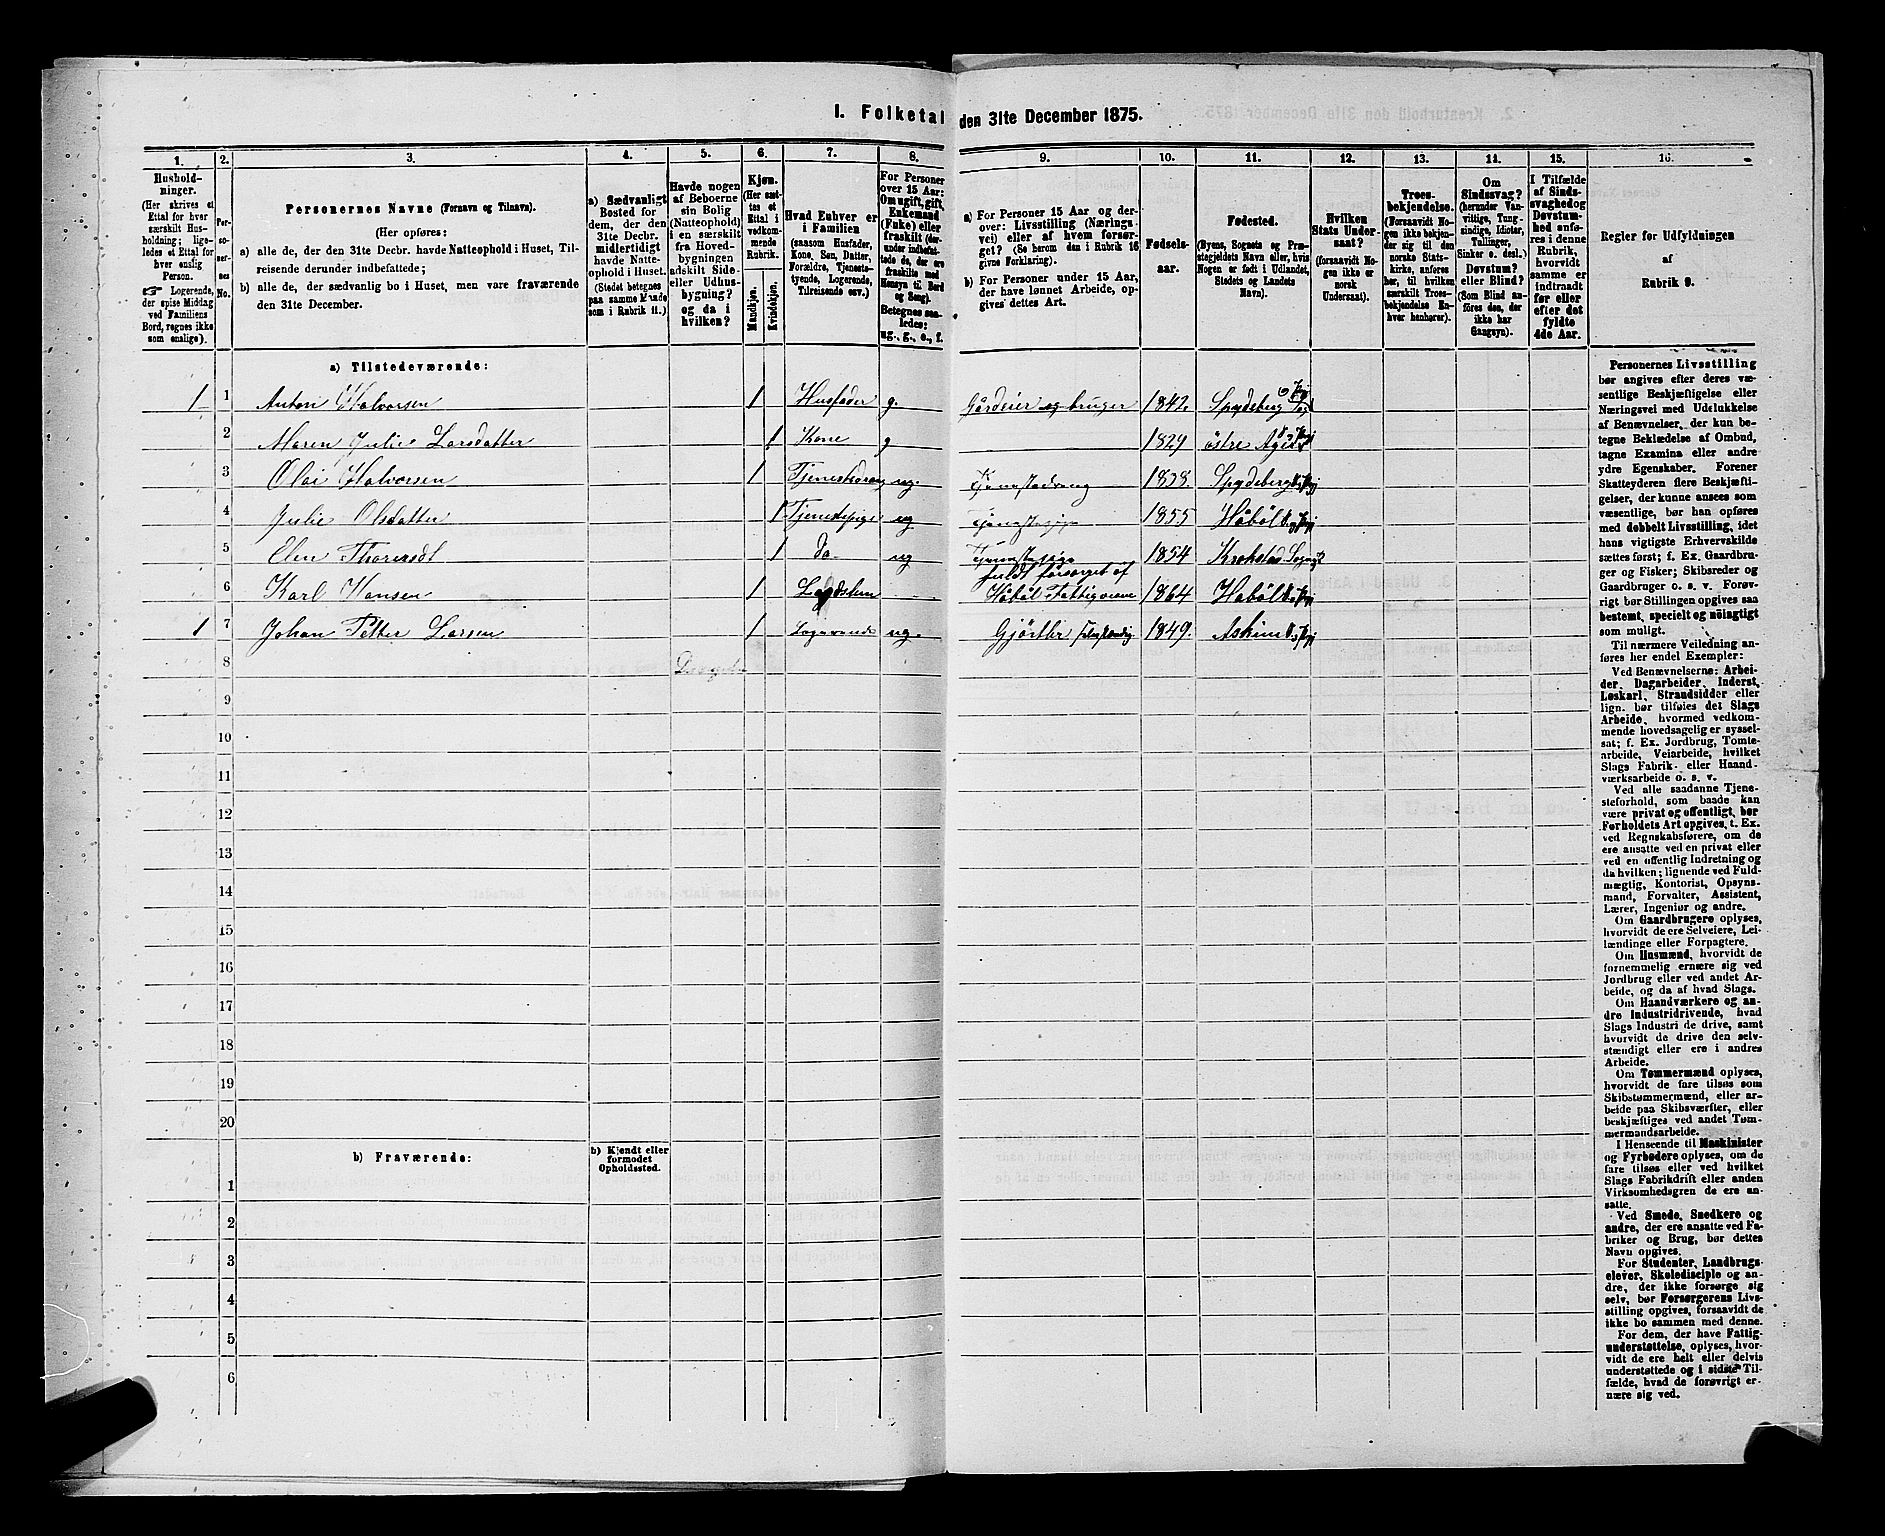 1. Folketal den 31te December 1875.
1. 2. 3. 4. 5. 6. 7. 8. 9. 10. 11. 12. 13. 14. 15. 16.
Hushold-
ninger.
(Her skrives et
Ettal for hver
særskilt Hus-
holdning; lige-
ledes et Ettal for
hver enslig
Person.
☞ Logerende,
der spise Middag
ved Familiens
Bord, regnes ikke
som enslige).
Per-
so-
ner-
nes
No.
Personernes Navne (Fornavn og Tilnavn).
(Her opføres:
a) alle de, der den 31te Decbr. havde Natteophold i Huset, Til-
reisende derunder indbefattede;
b) alle de, der sædvanlig bo i Huset, men vare fraværende
den 31te December.
a) Sædvanligt
Bosted for
dem, der den
31te Decbr.
midlertidigt
havde Natte-
ophold i Huset.
(Stedet betegnes
paa samme Maade
som i Rubrik 11.)
Havde nogen
af Beboerne
sin Bolig
(Natteophold)
i en særskilt
fra Hoved-
bygningen
adskilt Side-
eller Udhus-
bygning?
og da i
hvilken?
Kjøn.
(Her sæt-
tes et
Ettal i
vedkom-
mende
Rubrik.
Mandkjøn.
Kvindekjøn.
Hvad Enhver er
i Familien
(saasom Husfader,
Kone, Søn, Datter,
Forældre, Tjenests-
tyende, Logerende,
Tilreisende osv.)
For Personer
over 15 Aar:
Om ugift, gift,
Enkemand
(Enke) eller
fraskilt (der-
under indbefat-
tede de, der ere
fraskilte med
Hensyn til Bord
og Seng).
Betegnes saa-
ledes:
ug., g., e., f.
a) For Personer 15 Aar og der-
over: Livsstilling (Nærings-
vei) eller af hvem forsør-
get? (Se herom den i Rubrik 16
givne Forklaring).
b) For Personer under 15 Aar,
der have lønnet Arbeide, op-
gives dettes Art.
Fødsels-
aar.
Fødested.
(Byens, Sognets og Præ-
stegjeldets Navn eller, hvis
Nogen er født i Udlandet,
Stedets og Landets
Navn).
Hvilken
Stats Under-
saat?
(forsaavidt No-
gen ikke er
norsk
Undersaat).
Troes-
bekjendelse.
(Forsaavidt No-
gen ikke beken-
der sig til den
norske Stats-
kirke, anføres
her, til hvilken
særskilt Troes-
bekjendelse En-
hver henhører).
Om
Sindssvag?
(herunder Van-
vittige, Tung-
sindige, Idioter,
Tullinger,
Sinker o. desl.)
Døvstum?
eller Blind?
(Som Blind an-
føres den, der
ikke har
Gangsyn).
I Tilfælde
af Sinds-
svaghed og
Døvstum-
hed anfø-
res i denne
Rubrik,
hvorvidt
samme er
indtraadt
før eller
efter det
fyldte
4de Aar.
Regler for Udfyldningen
af
Rubrik 9.
a) Tilstedeværende:
1 1 Anton Halvorsen 1 Husfader g. Gårdeier og bruger 1842. Spydeberg
2 Maren Julie Larsdatter 1 Kone g 1829 östre
3 Olai Halvorsen 1 Tjenestedreng ug. 1838. Spydeberg
4 Julie Olsdatter 1 Tjenestepige ug 1855 Håböl
5 Elen Thorersdt 1 do ug 1854 Krokstad Sogn
fuldt forsørget af
6 Karl Hansen 1 Lægdslem Håböl Fattigvæsen 1864 Haböl
1 7 Johan Petter Larsen 1 Logerende ug. Gjörtler 1849. Askim
8
9
10
11
12
13
14
15
16
17
18
19
20
b) Fraværende:
b) Kjendt eller
formodet
Opholdssted.
1
2
3
4
5
6
Personernes Livsstilling
bør angives efter deres væ-
sentlige Beskjæftigelse eller
Næringsvei med Udelukkelse
af Benævnelser, der kun be-
tegne Beklædelse af Ombud,
tagne Examina eller andre
ydre Egenskaber. Forener
Skatteyderen flere Beskjæfti-
gelser, der kunne ansees som
væsentlige, bør han opføres
med dobbelt Livsstilling, idet
hans vigtigste Erhvervskilde
sættes først; f. Ex. Gaardbru-
ger og Fisker; Skibsreder og
Gaardbruger o. s. v. Forøv-
rigt bør Stillingen opgives saa
bestemt, specielt og nøiagtigt
som muligt.
Til nærmere Veiledning an-
føres her endel Exempler:
Ved Benævnelserne: Arbei-
der, Dagarbeider, Inderst,
Løskarl, Strandsidder eller
lign. bør tilføies det Slags
Arbeide, hvormed vedkom-
mende hovedsagelig er syssel-
sat; f. Ex. Jordbrug, Tomte-
arbeide, Veiarbeide, hvilket
Slags Fabrik- eller Haand-
værksarbeide o. s. v.
Ved alle saadanne Tjene-
steforhold, som baade kan
være privat og offentligt, bør
Forholdets Art opgives, f. Ex.
ved Regnskabsførere, om de
ere ansatte ved en privat eller
ved en offentlig Indretning og
da hvilken; lignende ved Fuld-
mægtig, Kontorist, Opsyns-
mand, Forvalter, Assistent,
Lærer, Ingeniør og andre.
Om Gaardbrugere oplyses,
hvorvidt de ere Selveiere, Lei-
lændinge eller Forpagtere.
Om Husmænd, hvorvidt de
fornemmelig ernære sig ved
Jordbrug eller ved andet Ar-
beide, og da af hvad Slags.
Om Haandværkere og an-
dre Industridrivende, hvad
Slags Industri de drive, samt
hvorvidt de drive den selv-
stændigt eller ere i andres
Arbeide.
Om Tømmermænd oplyses,
hvorvidt de fare tilsøs som
Skibstømmermænd, eller ar-
beide paa Skibsværfter, eller
beskjæftiges ved andet Tøm-
mermandsarbeide.
I Henseende til Maskinister
og Fyrbødere oplyses, om de
fare tilsøs eller ved hvilket
Slags Fabrikdrift eller anden
Virksomhedsgren de ere an-
satte.
Ved Smede, Snedkere og
andre, der ere ansatte ved Fa-
briker og Brug, bør dettes
Navn opgives.
For Studenter, Landbrugs-
elever, Skoledisciple og an-
dre, der ikke forsørge sig
selv, bør Forsørgerens Livs-
stilling opgives, forsaavidt de
ikke bo sammen med denne.
For dem, der have Fattig-
understøttelse, oplyses, hvor-
vidt de ere helt eller delvis
understøttede og i sidste Til-
fælde, hvad de forøvrigt er-
nære sig ved.